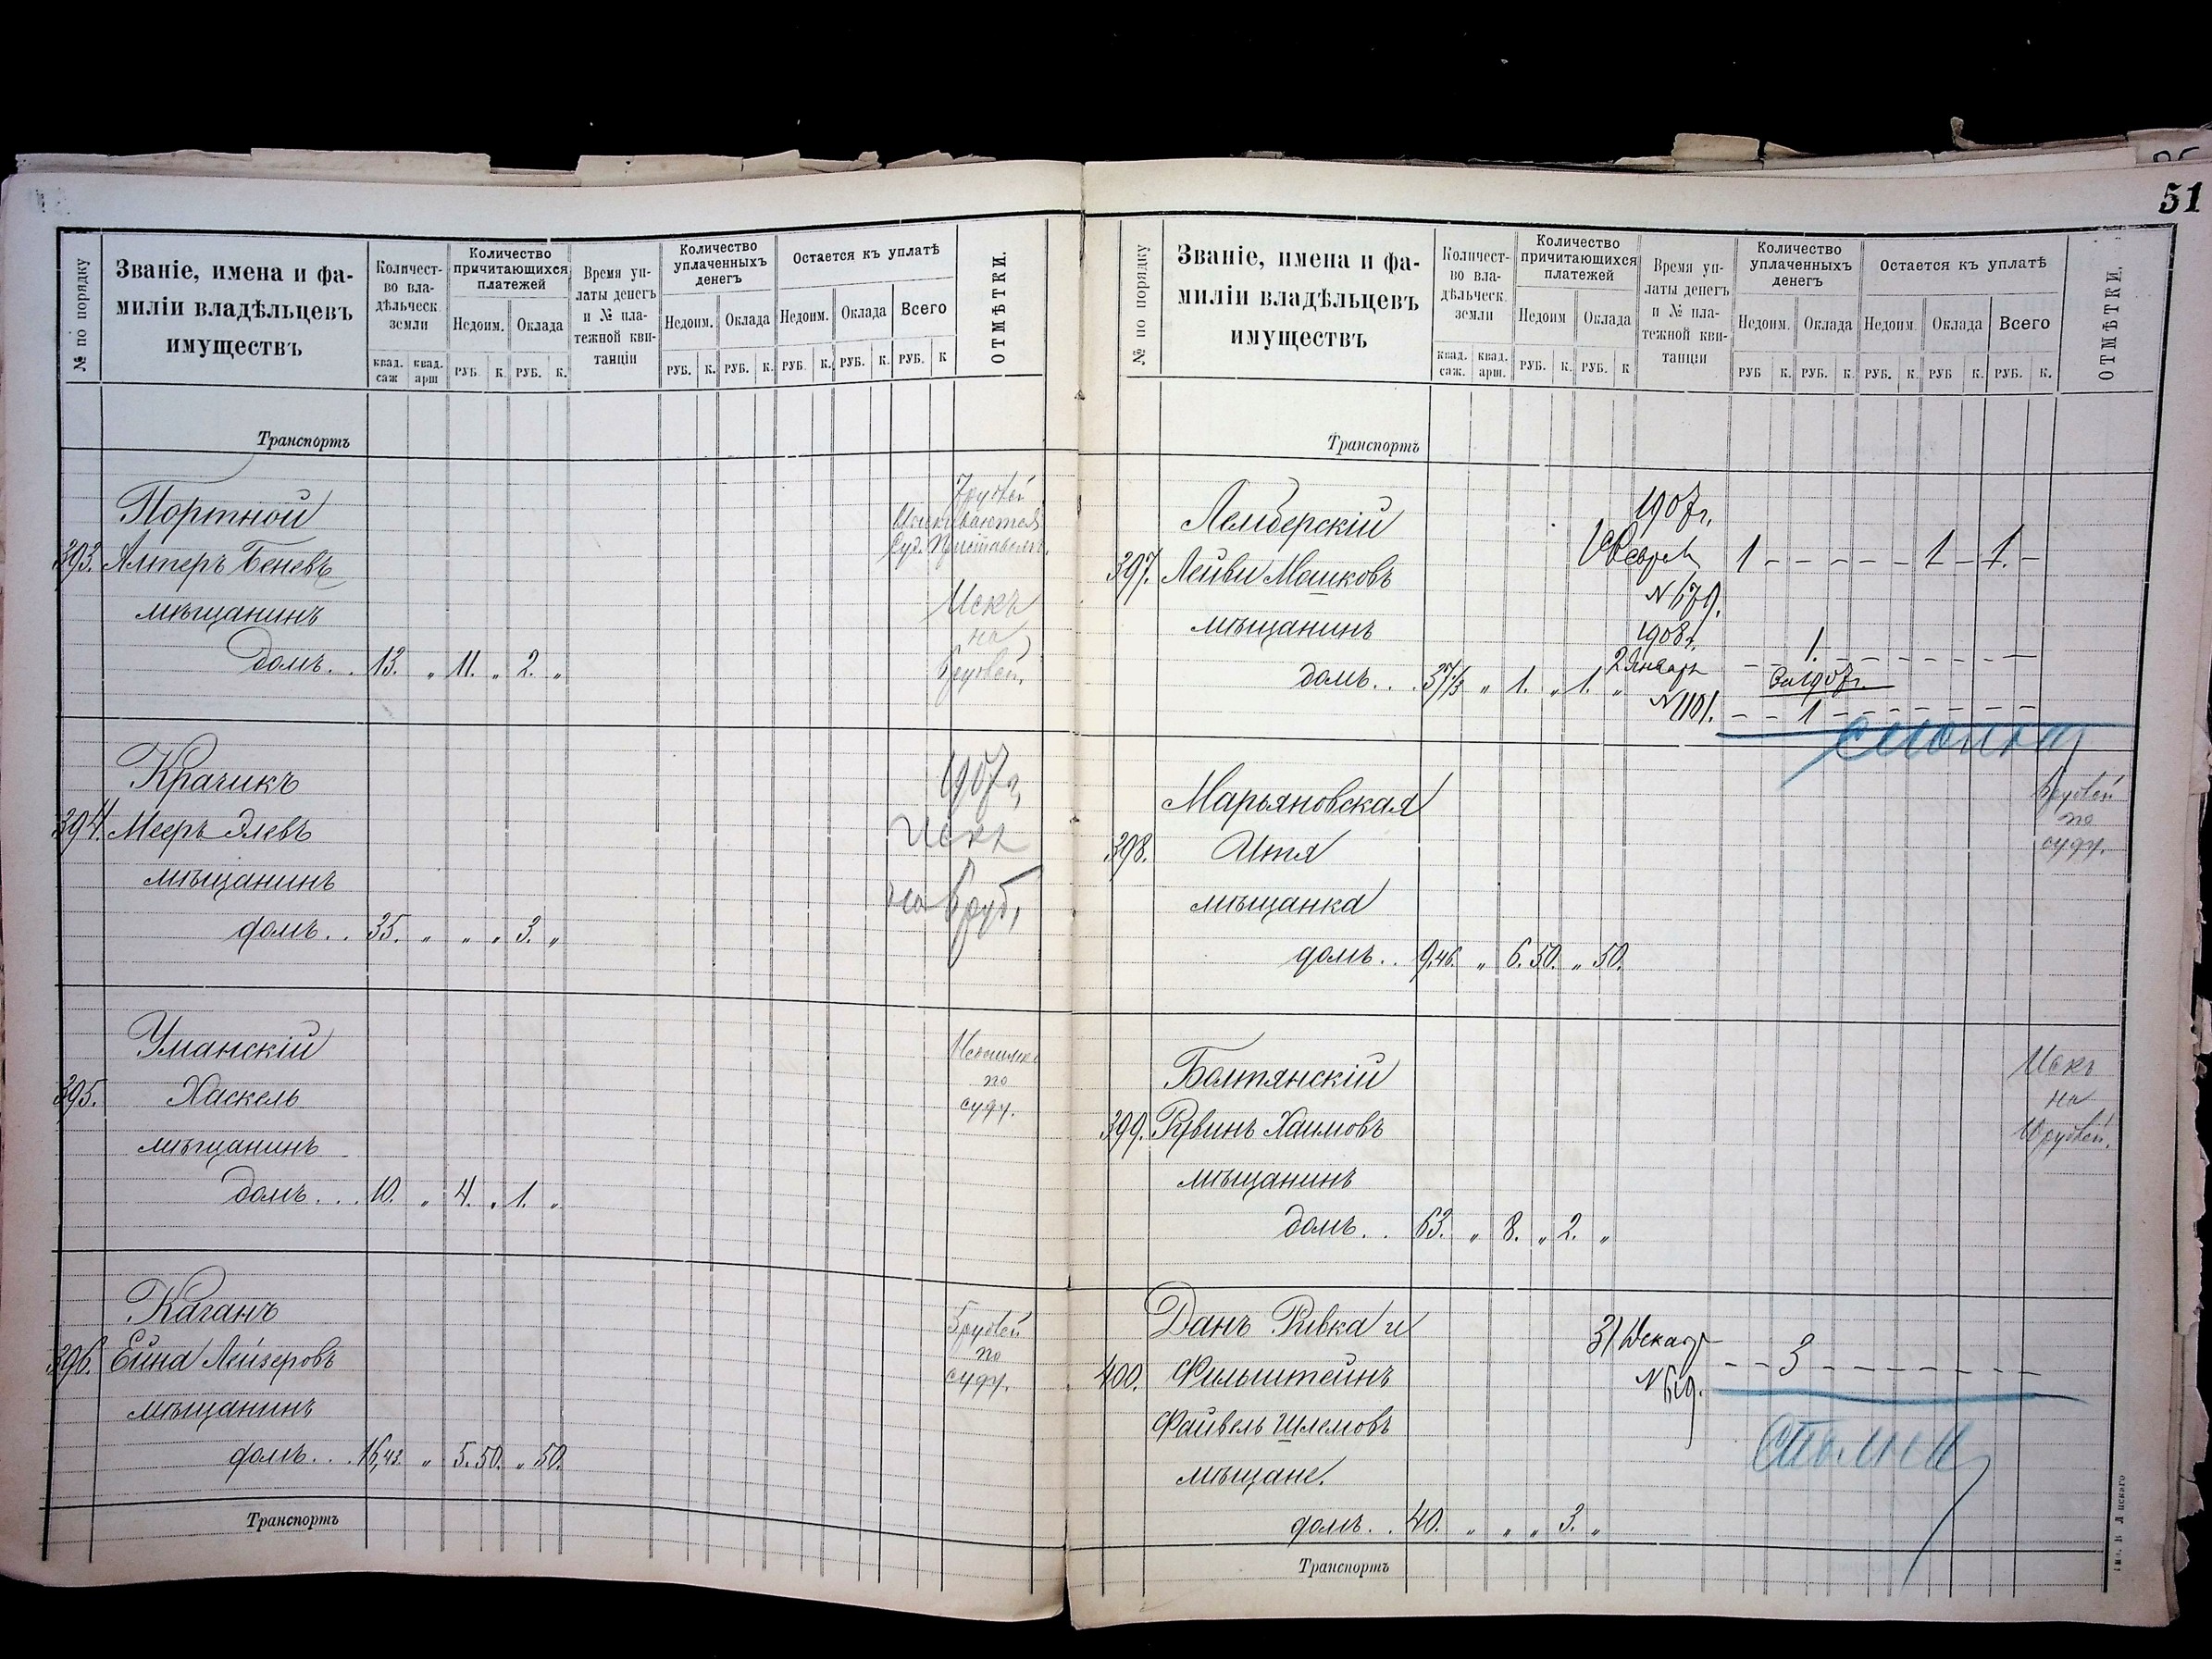 51
№ по порядку
Званіе, имена и фа-
миліи владѣльцевъ
имуществъ
Количест-
во вла-
дѣльческ.
земли
квад. саж
квад. арш
Количество
причитающихся
платежей
Недоим. Оклада
РУБ К. РУБ. К.
Время уп-
латы денегъ
и № пла-
тежной кви-
танціи
Количество
уплаченныхъ
денегъ
Недоим. Оклада
РУБ. К. РУБ. К.
Остается къ уплатѣ
Недоим. Оклада Всего
РУБ. К. РУБ. К. РУБ. К
ОТМѢТКИ.
Транспортъ
Портной
393. Алтеръ Беневъ
мѣщанинъ
домъ.. 13. „ 11. „ 2. „
7 рублей
Взыскиваются
Суд. Приставомъ.
Искъ
на
рублей.
Крачикъ
394. Мееръ Элевъ
мѣщанинъ
домъ.. 35. „ „ „ 3. „
1907 г.
Искъ
на 6 руб.
Уманскій
395. Хаскель
мѣщанинъ
домъ... 10. „ 4. „ 1. „
по
суду.
Каганъ
396. Ейна Лейзеровъ
мѣщанинъ
домъ... 16,43. „ 5.50. „ 50.
5 рублей
по
суду.
Транспортъ
№ по порядку
Званіе, имена и фа-
миліи владѣльцевъ
имуществъ
Количест-
во вла-
дѣльческ.
земли
квад. саж.
квад. арш.
Количество
причитающихся
платежей
Недоим Оклада
РУБ. К. РУБ. К
Время уп-
латы денегъ
и № пла-
тежной кви-
танціи
Количество
уплаченныхъ
денегъ
Недоим. Оклада
РУБ К. РУБ. К.
Остается къ уплатѣ
Недоим. Оклада Всего
РУБ. К. РУБ К. РУБ. К.
ОТМѢТКИ.
Транспортъ
Лемберскій
397. Лейви Машковъ
мѣщанинъ
домъ... 37⅓ „ 1. „ 1. „
1907 г.
Февраля 1 - - - - - 1 - 1. -
N 679.
1908 г.
2 Январь - - 1. - - - - - -
За 1907 г.
N 1101. - - 1 - - - - - - -
Марьяновская
398. Итя
мѣщанка
домъ.. 9,46. „ 6.50. „ 50.
рублей
по
суду.
Балтянскій
399. Рувинъ Хаимовъ
мѣщанинъ
домъ.. 63. „ 8. „ 2. „
Искъ
на
10 рублей.
Данъ Ривка и
400. Фильштейнъ
Файвель Шлемовъ
мѣщане.
домъ.. 40. „ „ „ 3. „
31 Декабр - - 3 - - - - - - -
Транспортъ